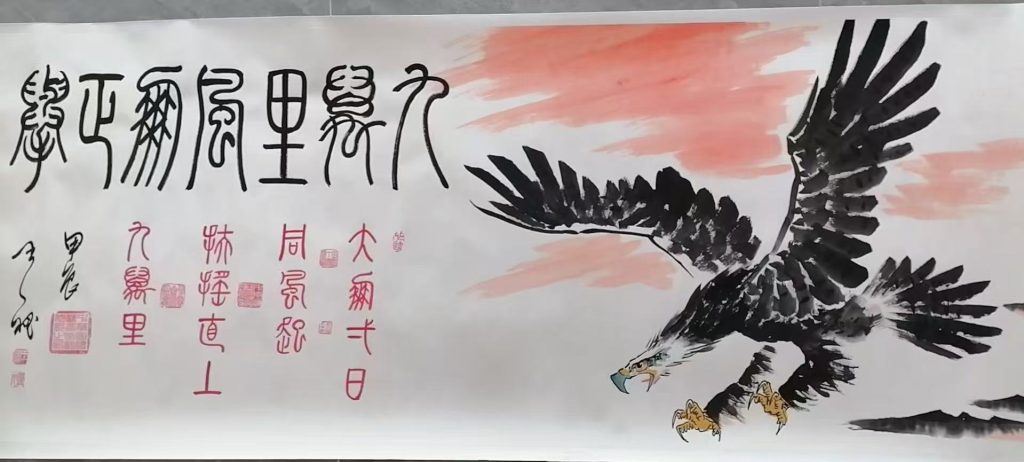 九萬里風鵬正舉
大鵬弌日
同風起
扶搖直上
九萬里
甲辰